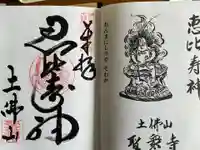 恵比寿神
土佛山
聖衆寺
そわか
奉拝
恵比寿神
土佛山